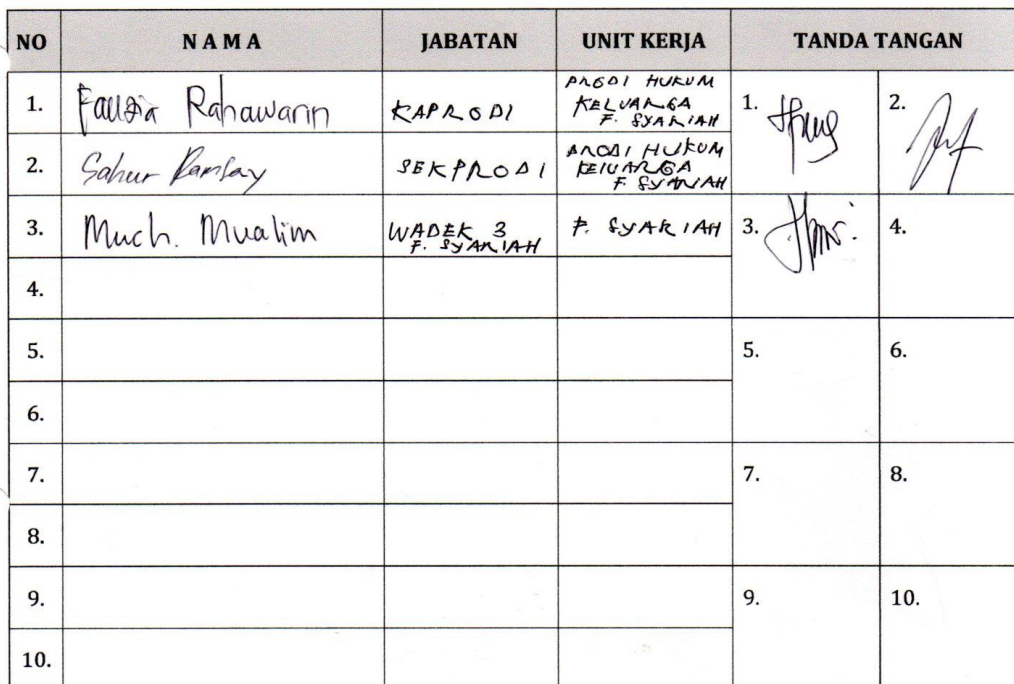 NO NAMA JABATAN UNIT KERJA TANDA TANGAN
1. Fauzia Rahawarin KAPRODI PRODI HUKUM
KELUARGA
F. SYARIAH 1. 2.
2. Sahur Ramsay SEKPRODI PRODI HUKUM
KELUARGA
F. SYARIAH
3. Much. Mualim WADEK 3
F. SYARIAH F. SYARIAH 3. 4.
4.
5. 5. 6.
6.
7. 7. 8.
8.
9. 9. 10.
10.